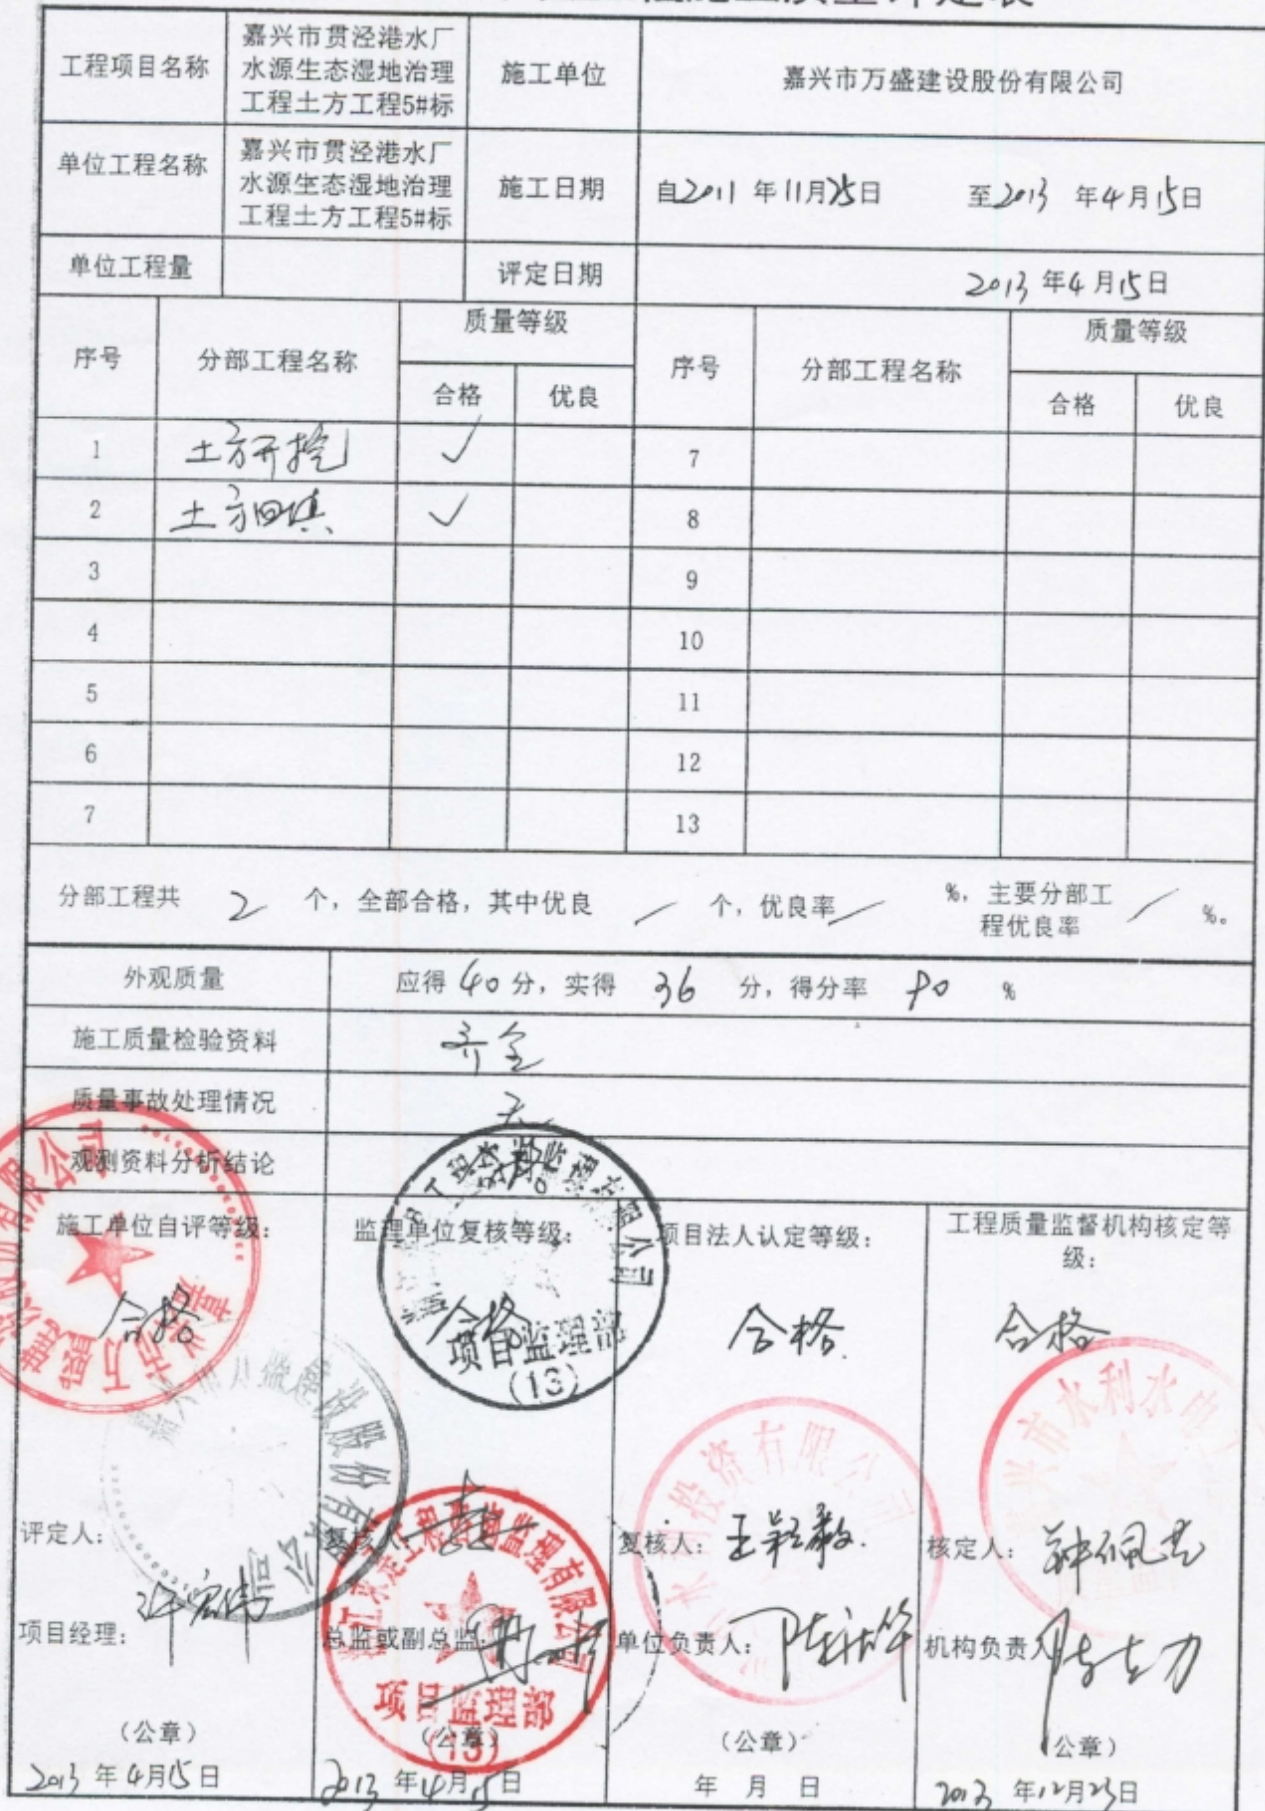 工程项目名称
嘉兴市贯泾港水厂
水源生态湿地治理
工程土方工程5#标
施工单位
嘉兴市万盛建设股份有限公司
单位工程名称
嘉兴市贯泾港水厂
水源生态湿地治理
工程土方工程5#标
施工日期
自2011年11月25日 至2013年4月15日
单位工程量
评定日期
2013年4月15日
序号
分部工程名称
质量等级
合格
优良
序号
分部工程名称
质量等级
合格
优良
1 土方开挖 ✓ 7
2 土方回填 ✓ 8
3 9
4 10
5 11
6 12
7 13
分部工程共 2 个，全部合格，其中优良 / 个，优良率 / %，主要分部工
程优良率 / %。
外观质量
应得40分，实得 36 分，得分率 90 %
施工质量检验资料
齐全
质量事故处理情况
无
观测资料分析结论
施工单位自评等级：
合格
监理单位复核等级：
合格
项目法人认定等级：
合格
工程质量监督机构核定等
级：
合格
项目监理部
(13)
评定人：
复核人
复核人：
核定人：
项目经理：
总监或副总监：
单位负责人：
机构负责人
项目监理部
(13)
（公章）
（公章）
（公章）
（公章）
2013年4月15日
2013年4月15日
年 月 日
2013年12月23日